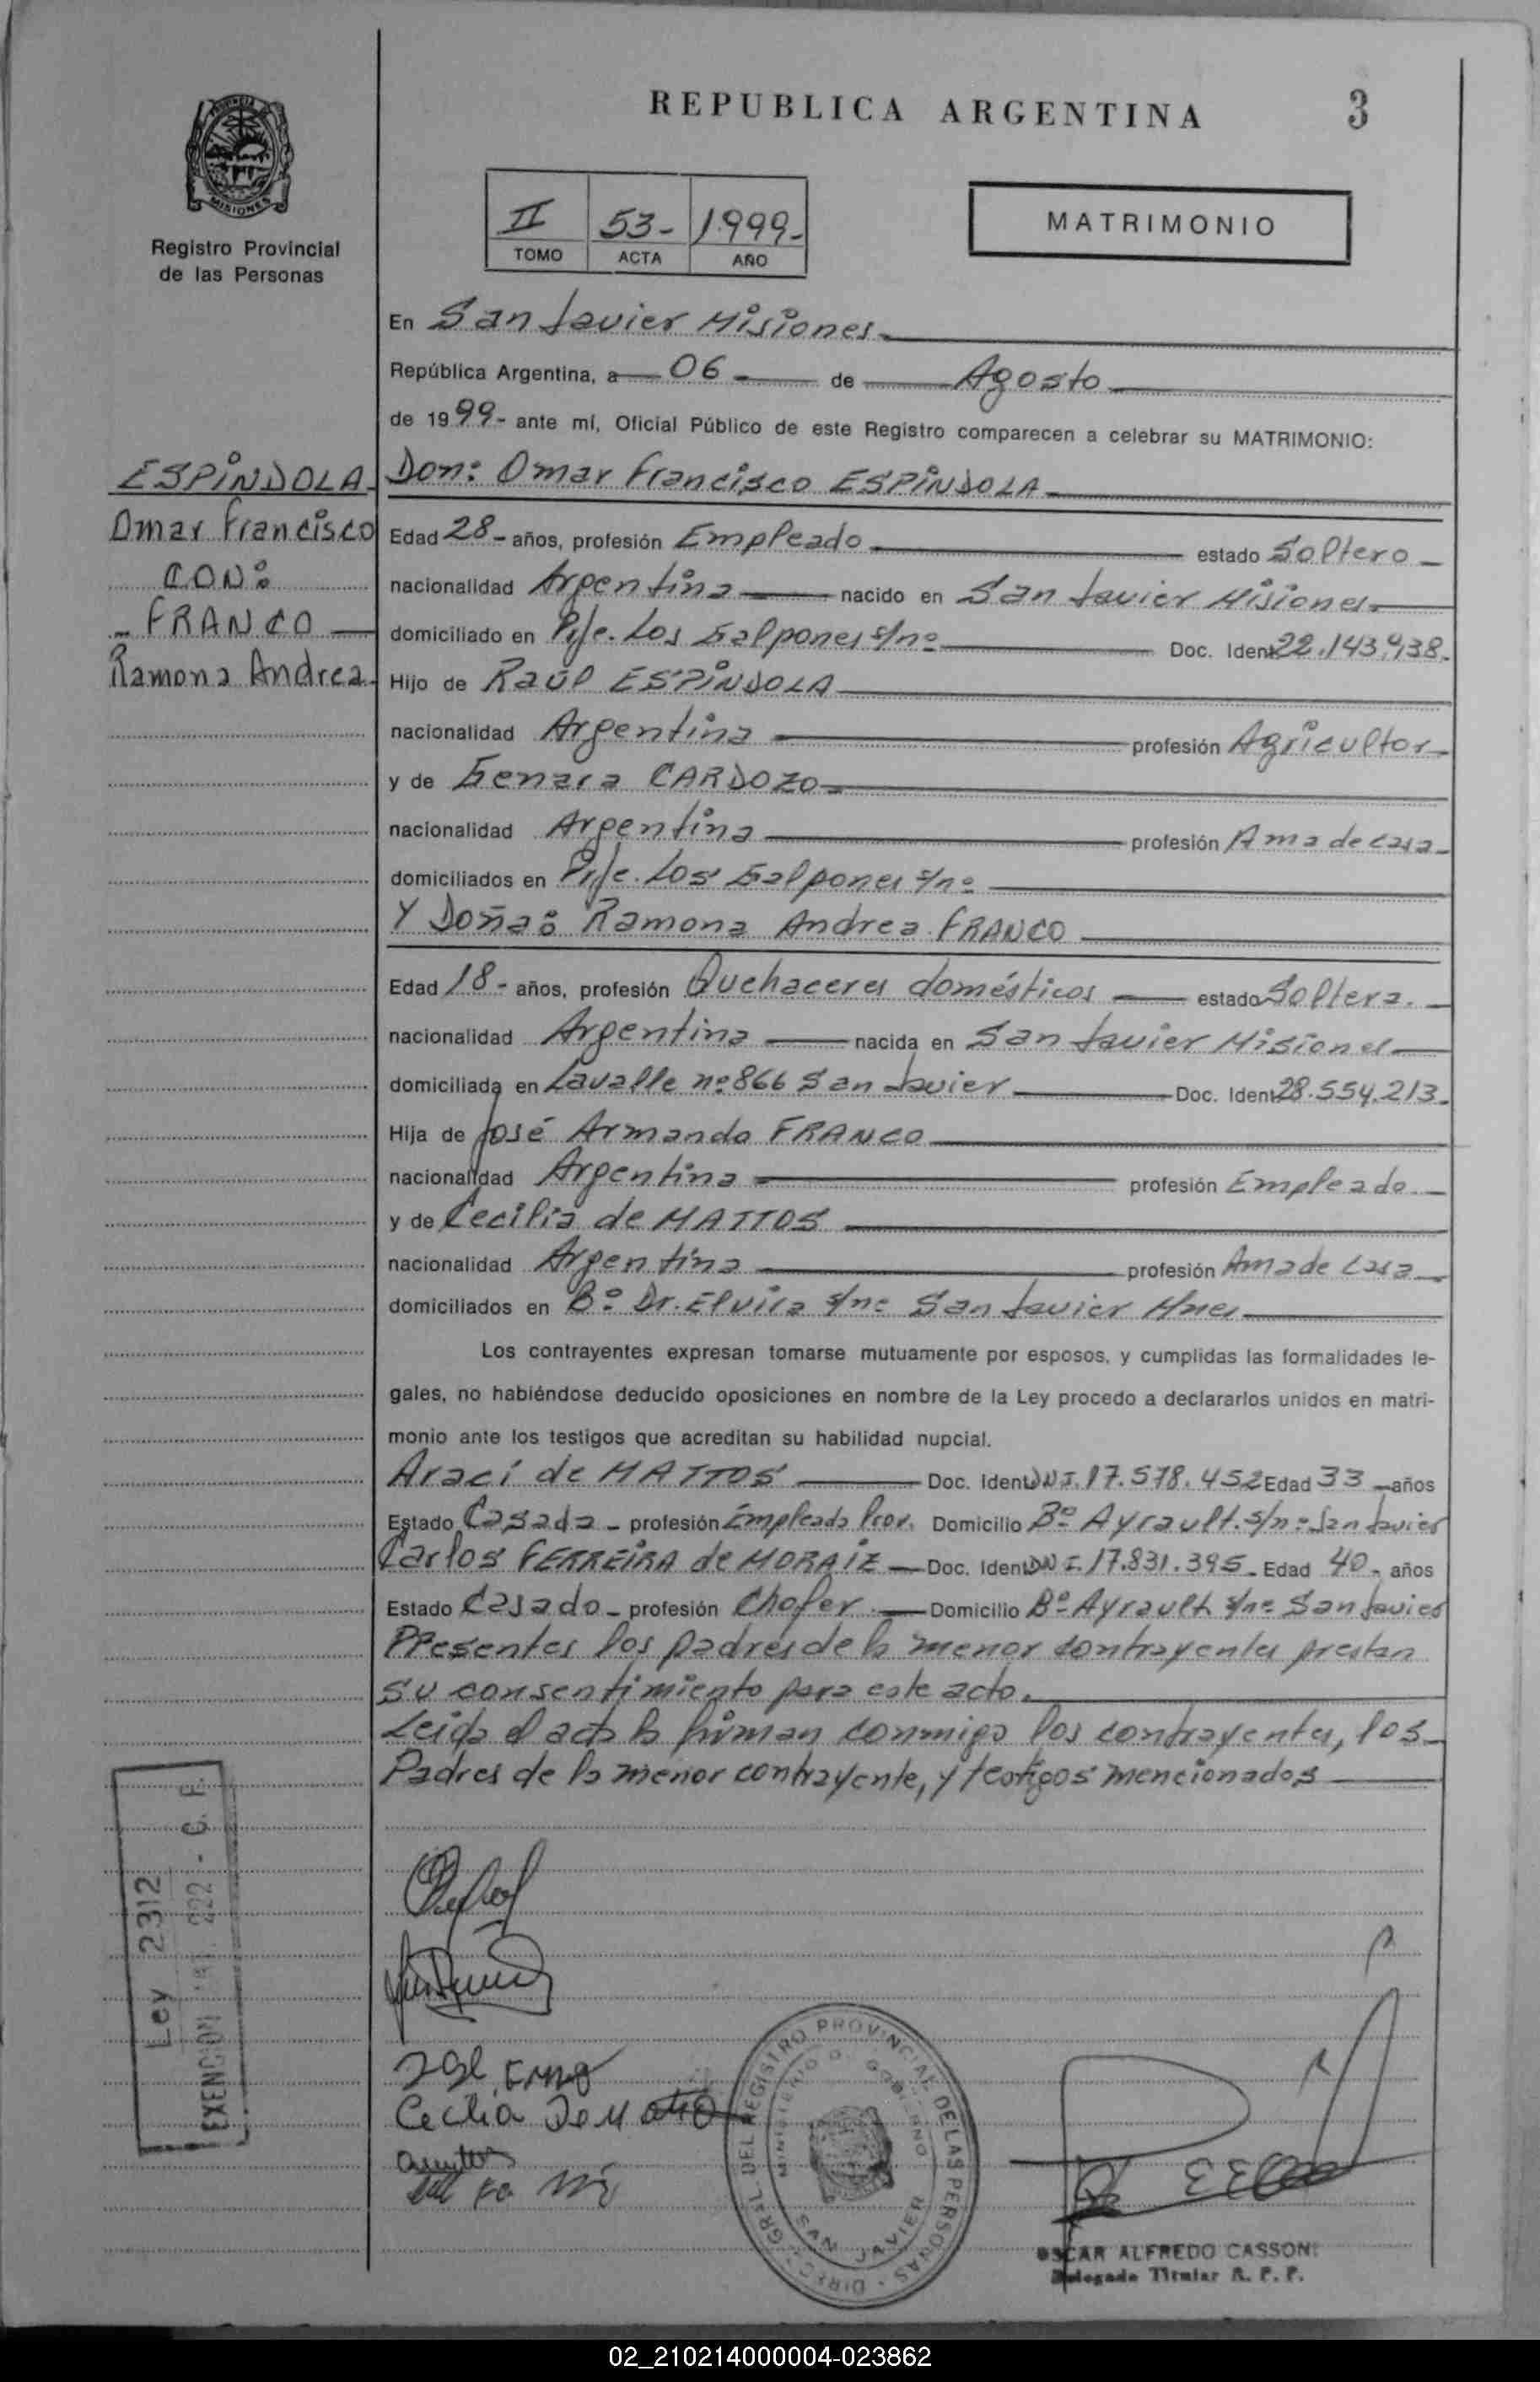 REPUBLICA ARGENTINA
3
MISIONES
Registro Provincial
de las Personas
II 53- 1.999-
TOMO ACTA AÑO
MATRIMONIO
En San Javier Misiones
República Argentina, a 06 de Agosto
de 1999- ante mí, Oficial Público de este Registro comparecen a celebrar su MATRIMONIO:
ESPINDOLA
Omar Francisco
CON:
FRANCO
Ramona Andrea
Don: Omar Francisco ESPINDOLA
Edad 28- años, profesión Empleado estado Soltero
nacionalidad Argentina nacido en San Javier Misiones
domiciliado en Pje. Los Galpones s/nº Doc. Ident 22.143.938.
Hijo de Raúl ESPINDOLA
nacionalidad Argentina profesión Agricultor
y de Genara CARDOZO
nacionalidad Argentina profesión Ama de casa
domiciliados en Pje. Los Galpones s/nº
Y Doña: Ramona Andrea FRANCO
Edad 18- años, profesión Quehaceres domésticos estado Soltera.
nacionalidad Argentina nacida en San Javier Misiones
domiciliada en Lavalle nº 866 San Javier Doc. Ident 28.554.213.
Hija de José Armando FRANCO
nacionalidad Argentina profesión Empleado
y de Cecilia de MATTOS
nacionalidad Argentina profesión Ama de casa
domiciliados en Bº Dr. Elvira s/nº San Javier Mnes
Los contrayentes expresan tomarse mutuamente por esposos, y cumplidas las formalidades le-
gales, no habiéndose deducido oposiciones en nombre de la Ley procedo a declararlos unidos en matri-
monio ante los testigos que acreditan su habilidad nupcial.
Aracì de MATTOS Doc. Ident DNI. 17.578.452 Edad 33 años
Estado Casada - profesión Empleada Prov. Domicilio Bº Ayrault. s/nº San Javier
Carlos FERREIRA de MORAIZ Doc. Ident DNI. 17.831.395. Edad 40. años
Estado Casado - profesión Chofer Domicilio Bº Ayrault s/nº San Javier
Presentes los padres de la menor contrayentes prestan
su consentimiento para este acto.
Leída el acta la firman conmigo los contrayentes, los
Padres de la menor contrayente, y testigos mencionados
Ley 2312
EXENCION 222 - C. F.
Cecilia De
DIRECC. GRAL. DEL REGISTRO PROVINCIAL DE LAS PERSONAS
MINISTERIO D. GOBIERNO
SAN JAVIER
OSCAR ALFREDO CASSONI
Delegado Titular R. P. P.
02_210214000004-023862